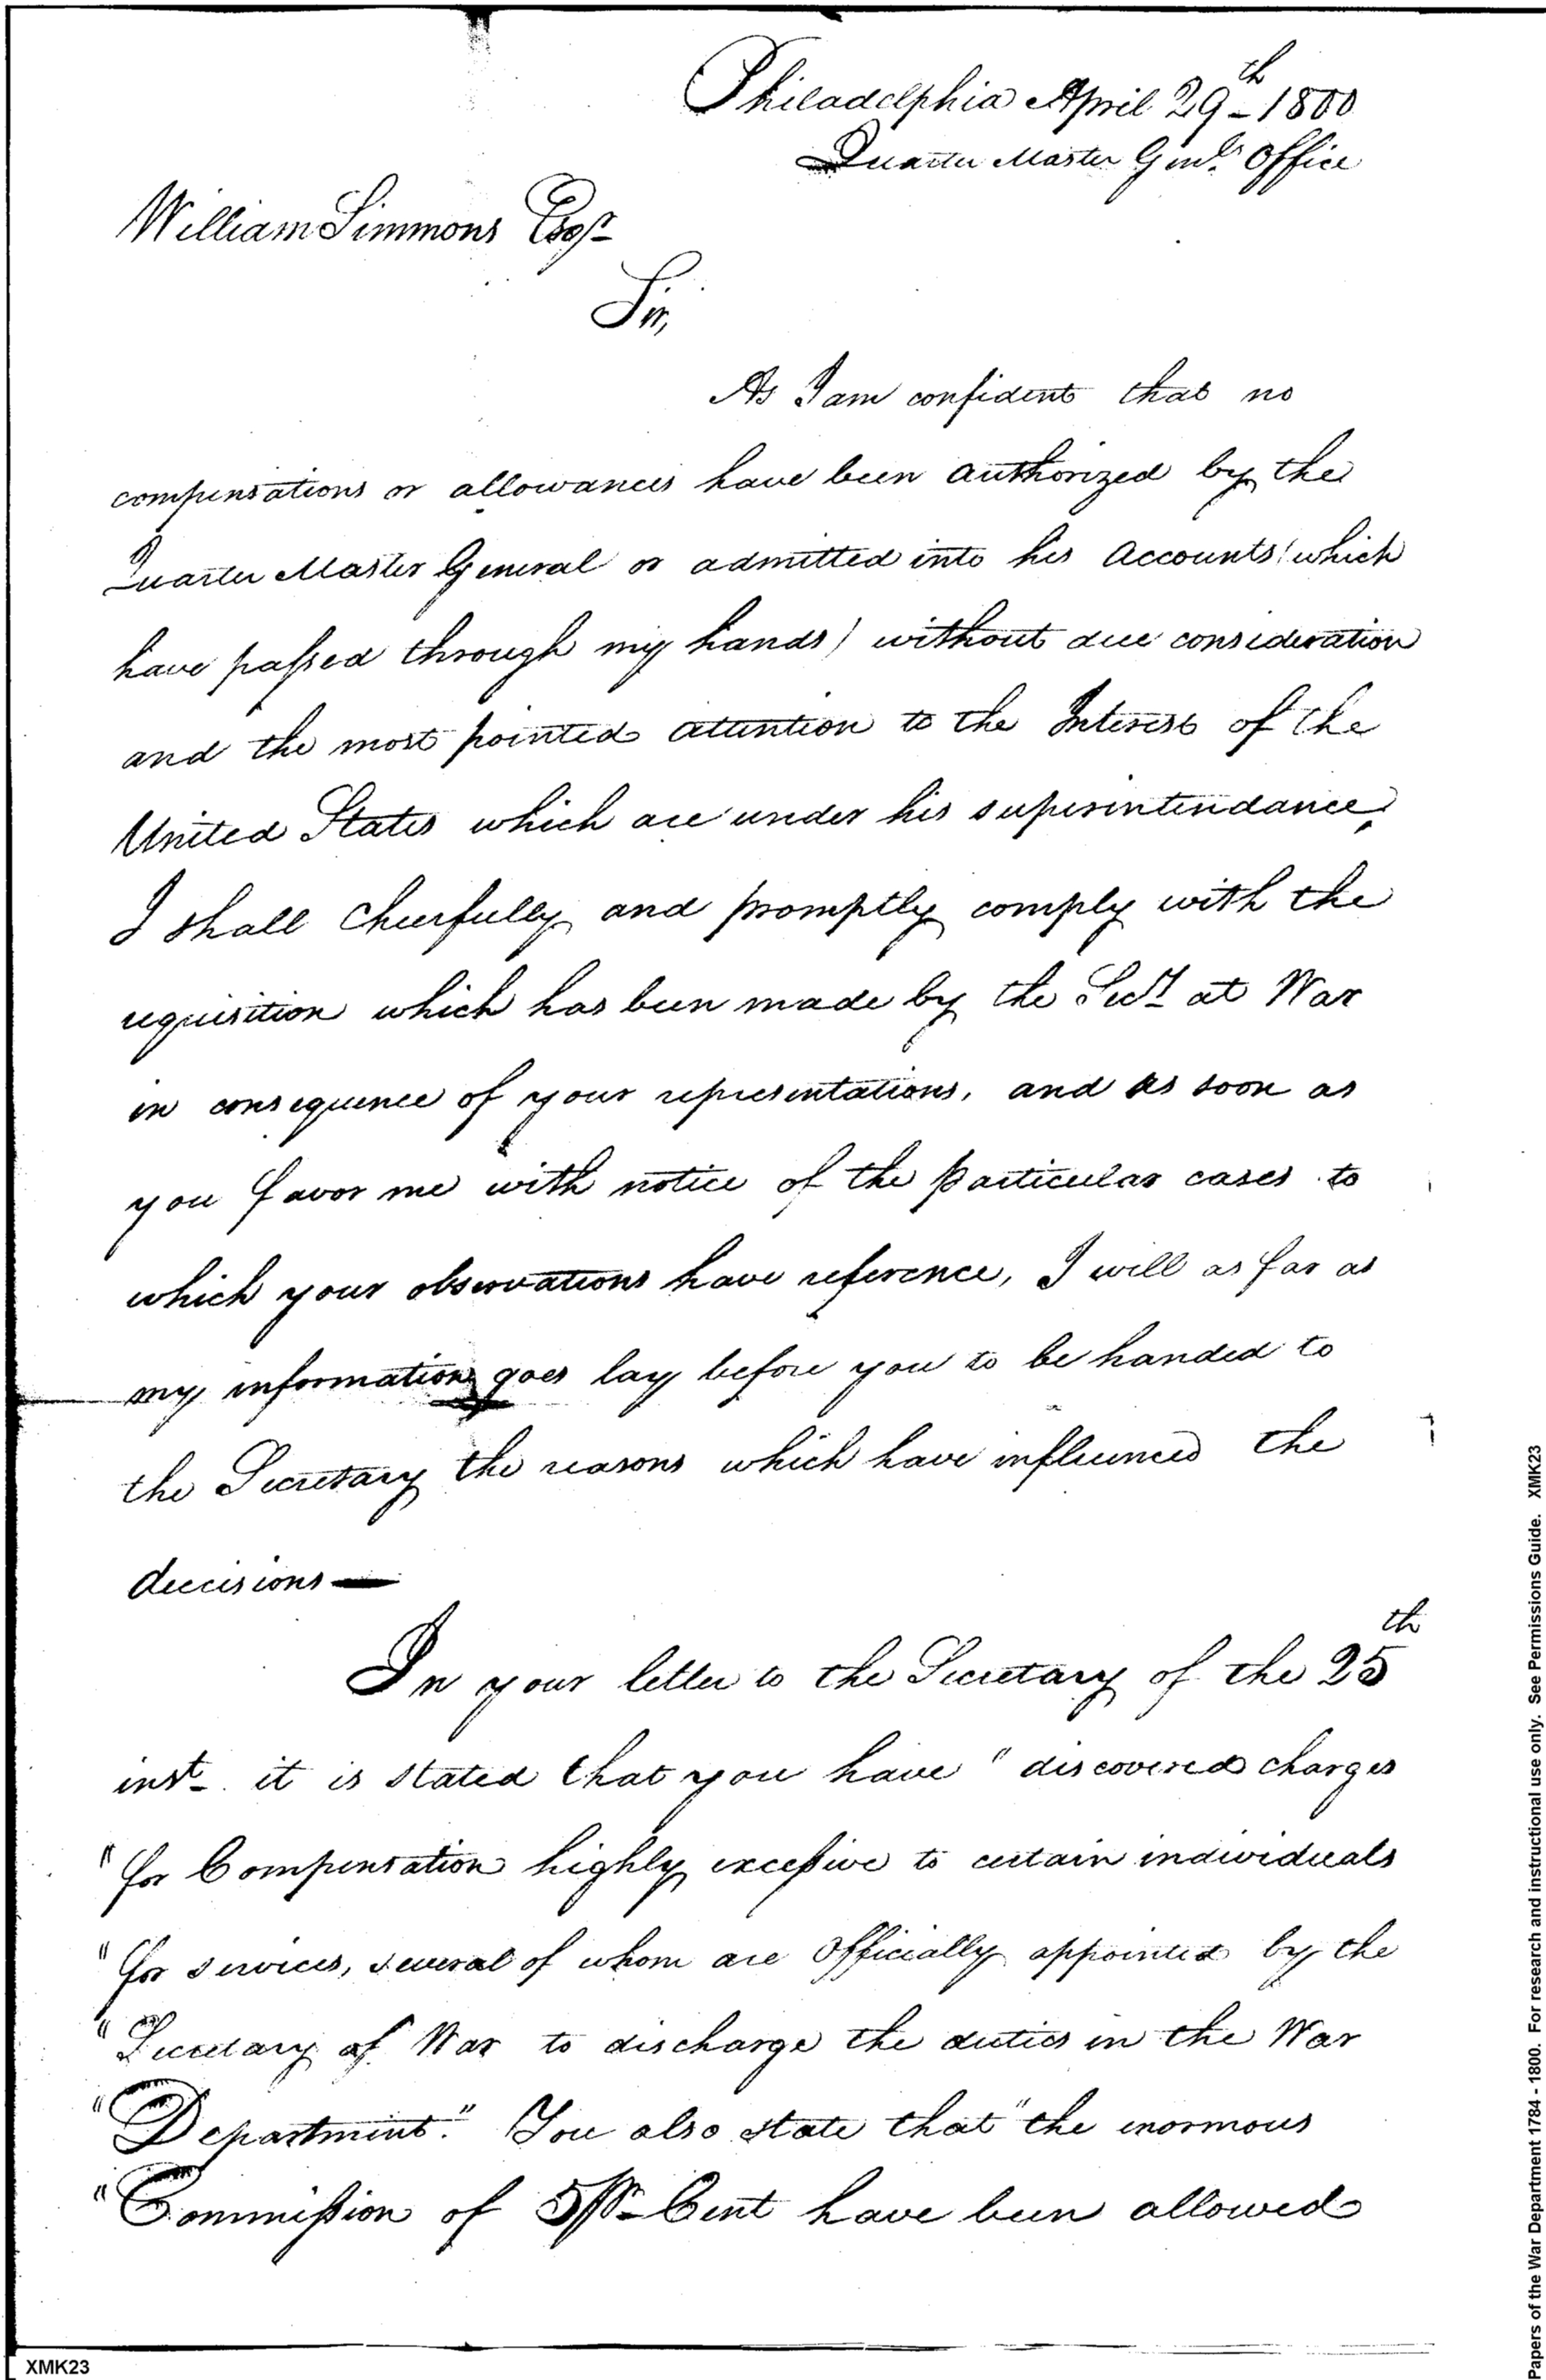 Philadelphia April 29th 1800
Quarter Master Genls. Office
William Simmons Esqr
Sir,
As I am confident that no
compensations or allowances have been authorized by the
Quarter Master General or admitted into his Accounts (which
have passed through my hands) without due consideration
and the most pointed attention to the Interest of the
United States which are under his superintendance,
I shall cheerfully and promptly comply with the
requisition which has been made by the Secy at War
in consequence of your representations, and as soon as
you favor me with notice of the particular cases to
which your observations have reference, I will as far as
my information goes lay before you to be handed to
the Secretary the reasons which have influenced the
decisions —
In your letter to the Secretary of the 25th
inst. it is stated that you have "discovered charges
"for Compensation highly excessive to certain individuals
"for services, several of whom are Officially appointed by the
"Secretary of War to discharge the duties in the War
"Department." You also state that "the enormous
"Commission of 5 pr Cent have been allowed
XMK23
Papers of the War Department 1784 - 1800. For research and instructional use only. See Permissions Guide. XMK23